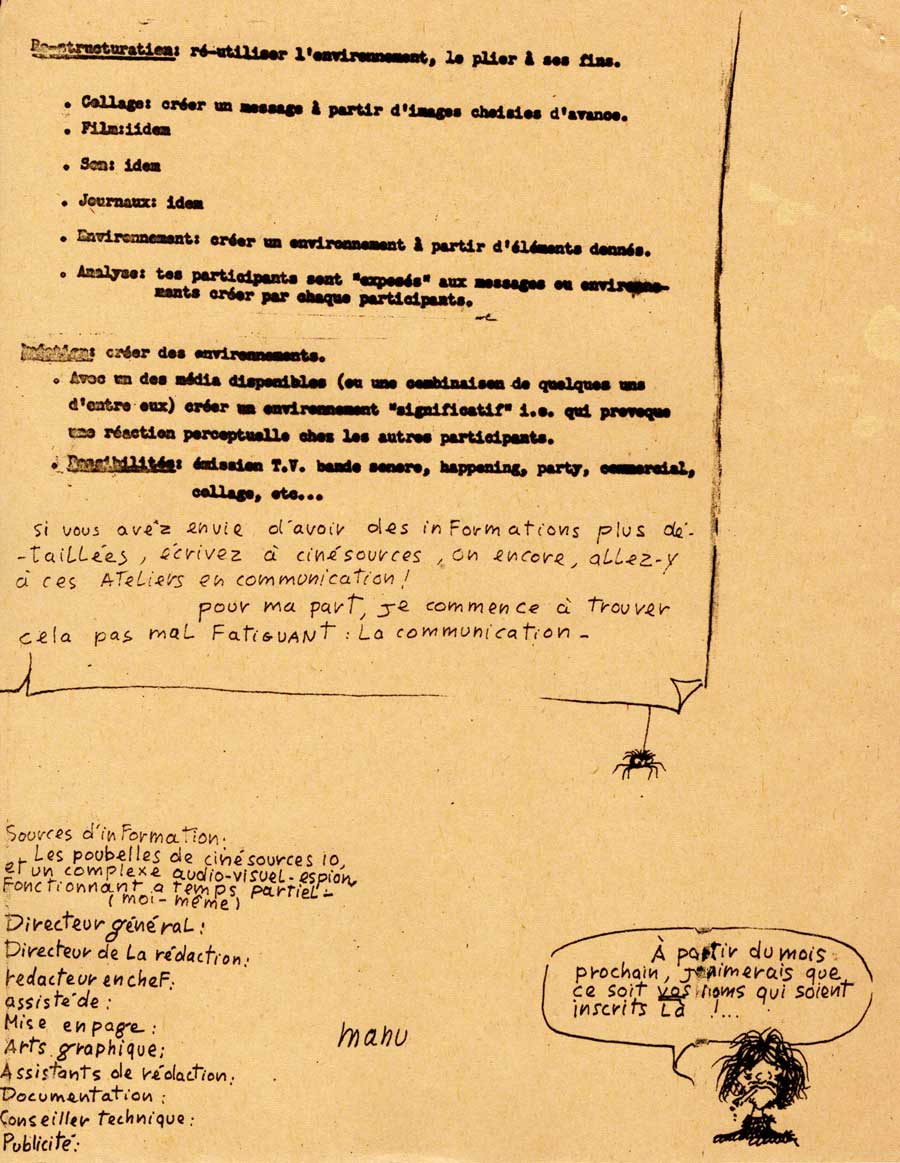 Re-structuration: ré-utiliser l'environnement, le plier à ses fins.
• Collage: créer un message à partir d'images choisies d'avance.
• Film:iidem
• Son: idem
• Journaux: idem
• Environnement: créer un environnement à partir d'éléments donnés.
• Analyse: tes participants sont "exposés" aux messages ou environne-
ments créer par chaque participants.
créer des environnements.
• Avec un des média disponibles (ou une combinaison de quelques uns
d'entre eux) créer un environnement "significatif" i.e. qui provoque
une réaction perceptuelle chez les autres participants.
• Possibilités: émission T.V. bande sonore, happening, party, commercial,
collage, etc...
si vous avez envie d'avoir des informations plus dé-
-taillées, écrivez à cinésources, on encore, allez-y
à ces Ateliers en communication!
pour ma part, je commence à trouver
cela pas mal Fatiguant : La communication -
Sources d'information:
Les poubelles de cinésources 10,
et un complexe audio-visuel-espion
Fonctionnant a temps partiel -
(moi-même)
Directeur général:
Directeur de La rédaction:
redacteur en cheF:
assisté de:
Mise en page:
manu
Arts graphique:
Assistants de rédaction:
Documentation:
Conseiller technique:
Publicité:
À partir du mois
prochain, j'aimerais que
ce soit vos noms qui soient
inscrits Là !...